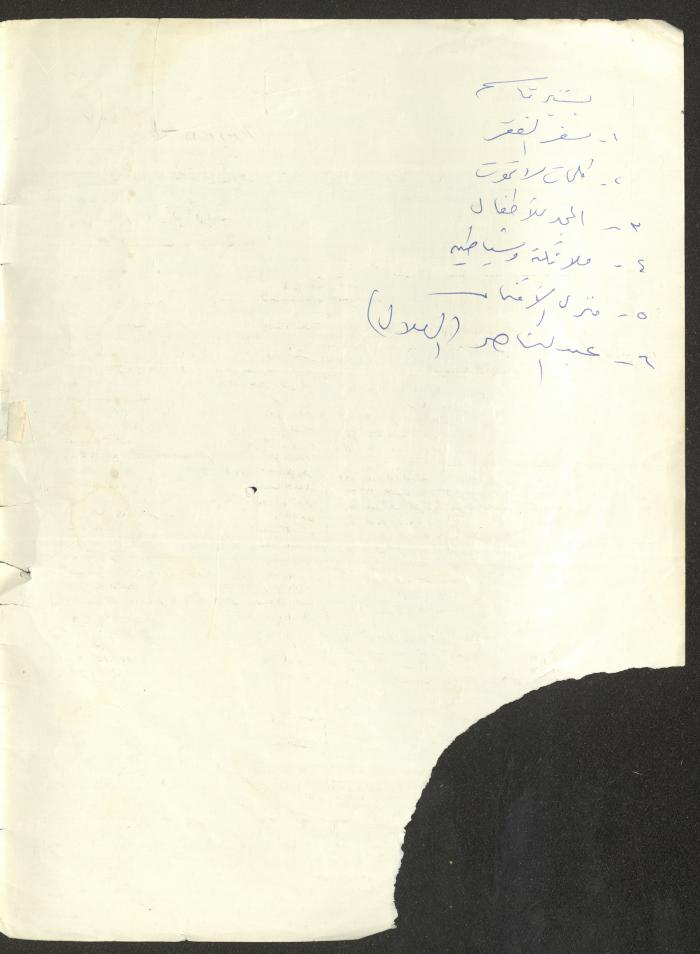 ١- سفر الفقر
٢- كلمات لا تموت
٣- المجد للأطفال
٤- ملائكة وشياطين
٥- منزل الأقنان
٦- عبد الناصر (الهلال)